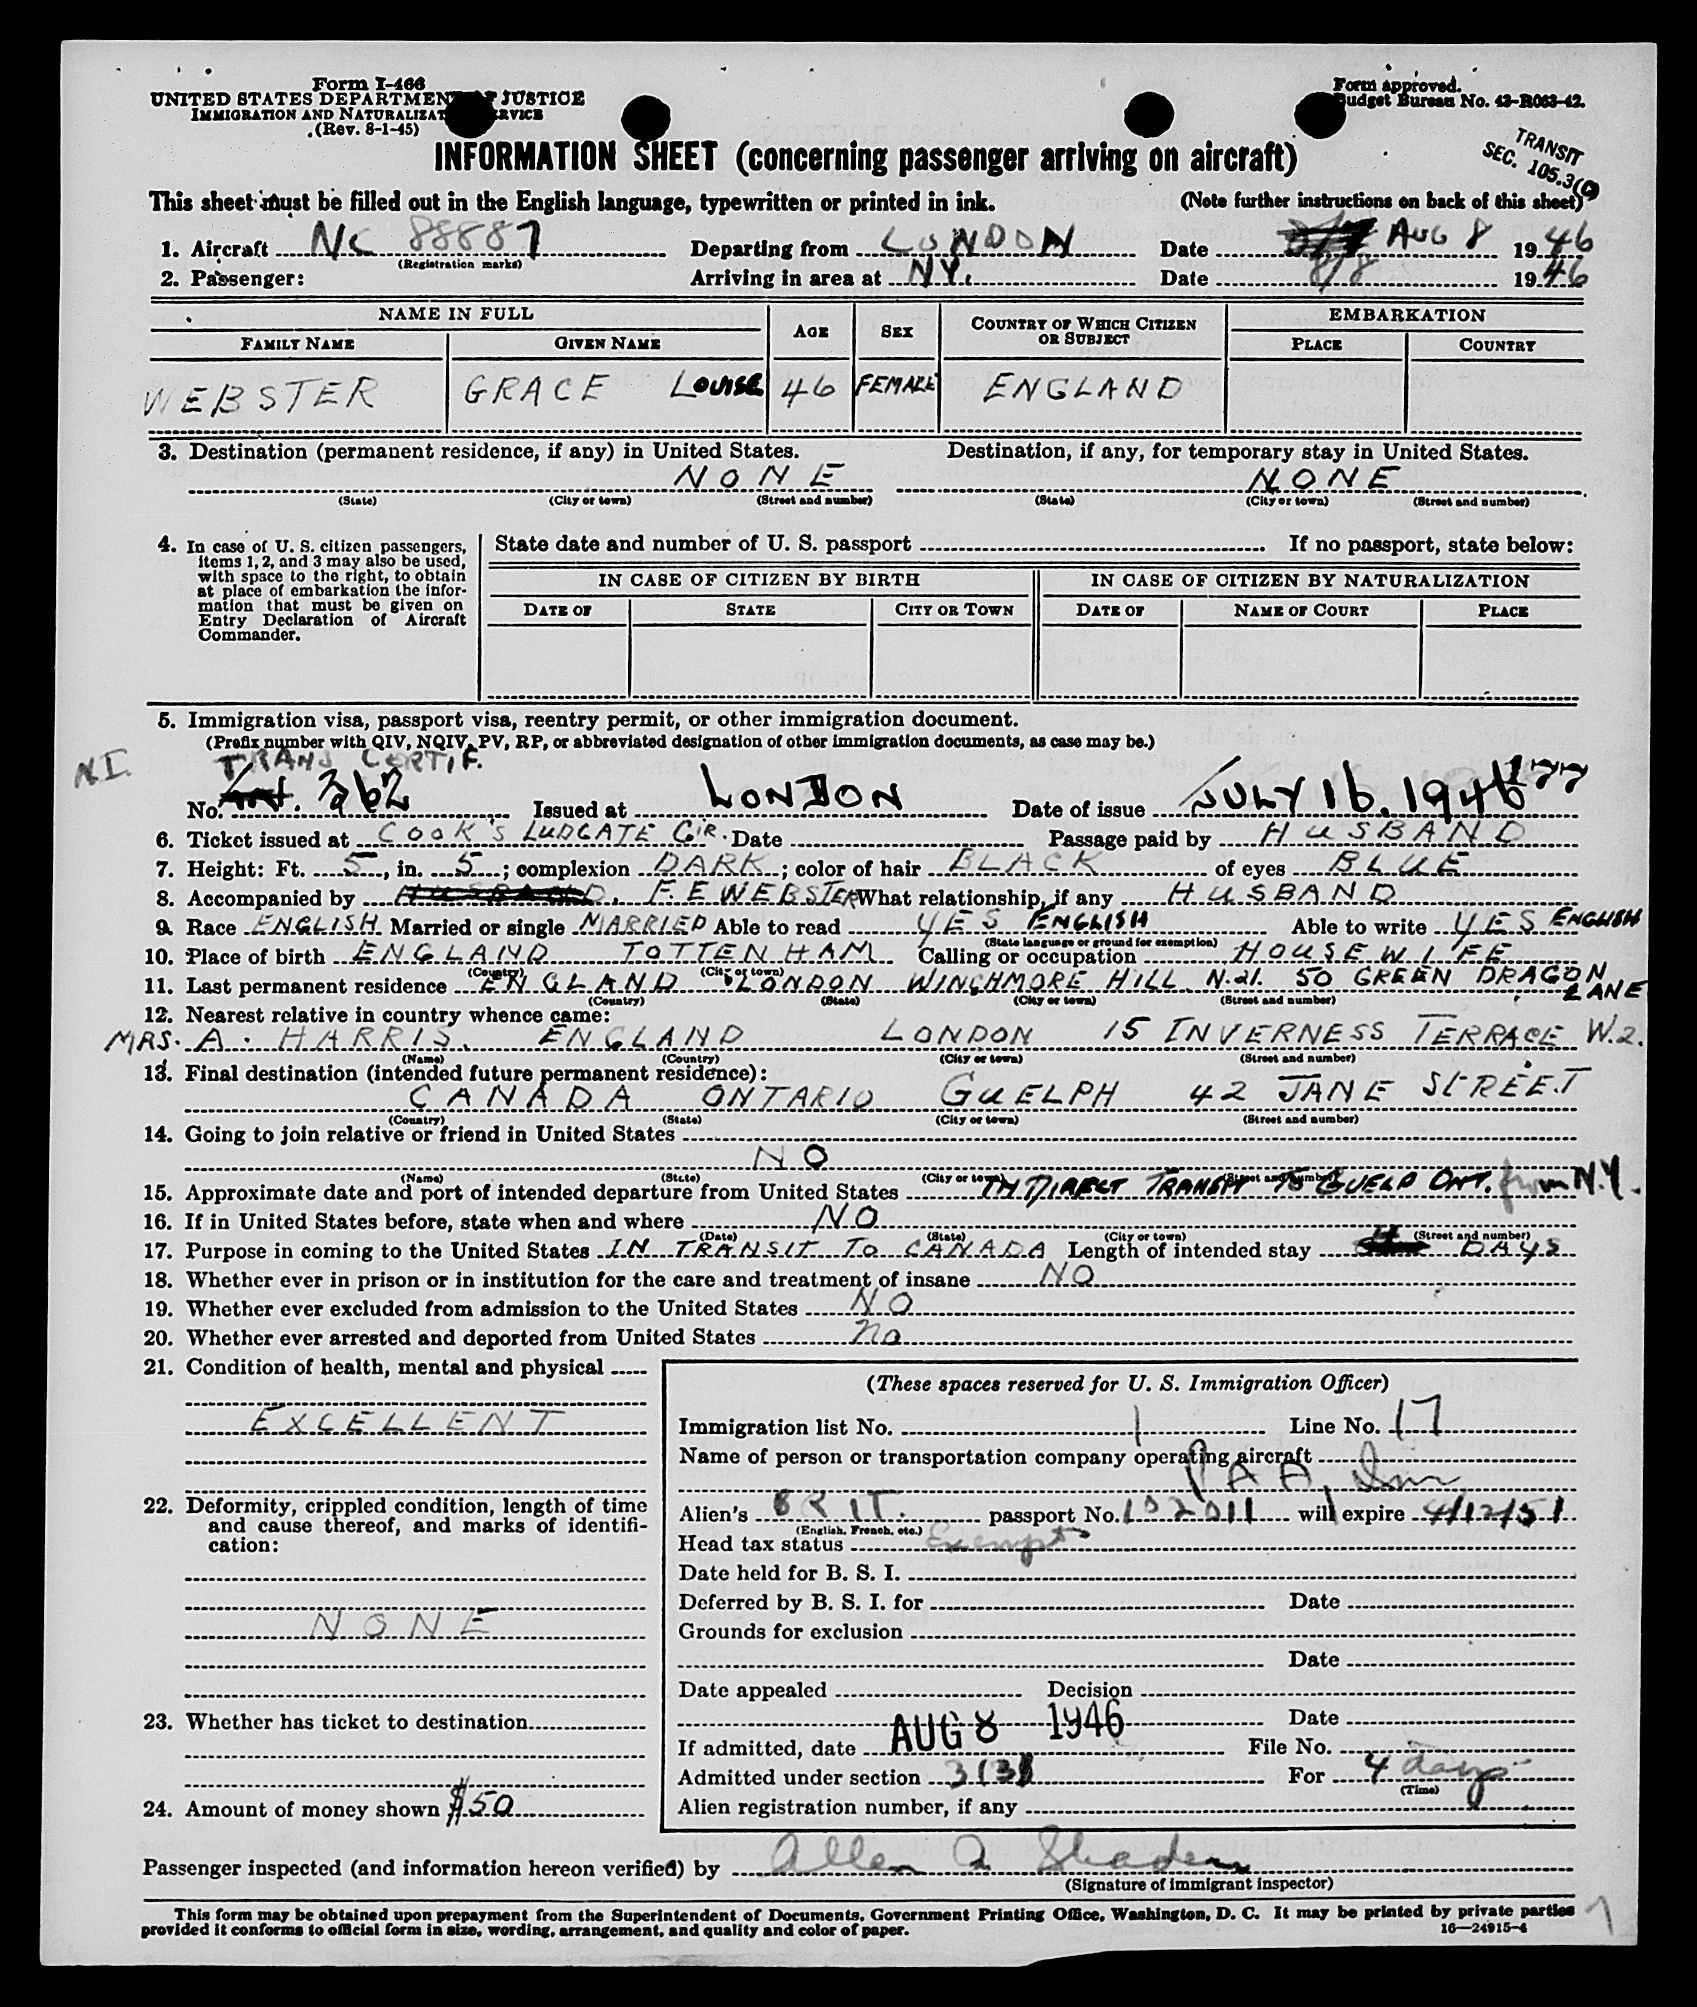 Form I-466
UNITED STATES DEPARTMENT OF JUSTICE
IMMIGRATION AND NATURALIZATION SERVICE
(Rev. 8-1-45)
Form approved.
Budget Bureau No. 43-R063-42.
TRANSIT
SEC. 105.3(C)
INFORMATION SHEET (concerning passenger arriving on aircraft)
This sheet must be filled out in the English language, typewritten or printed in ink. (Note further instructions on back of this sheet)
1. Aircraft NC 88887 Departing from LONDON Date AUG 8 1946
(Registration marks)
2. Passenger: Arriving in area at N.Y. Date 8/8 1946
NAME IN FULL AGE SEX COUNTRY OF WHICH CITIZEN OR SUBJECT EMBARKATION
FAMILY NAME GIVEN NAME PLACE COUNTRY
WEBSTER GRACE LOUISE 46 FEMALE ENGLAND
3. Destination (permanent residence, if any) in United States. Destination, if any, for temporary stay in United States.
NONE NONE
(State) (City or town) (Street and number) (State) (City or town) (Street and number)
4. In case of U. S. citizen passengers, items 1, 2, and 3 may also be used, with space to the right, to obtain at place of embarkation the information that must be given on Entry Declaration of Aircraft Commander.
State date and number of U. S. passport If no passport, state below:
IN CASE OF CITIZEN BY BIRTH IN CASE OF CITIZEN BY NATURALIZATION
DATE OF STATE CITY OR TOWN DATE OF NAME OF COURT PLACE
5. Immigration visa, passport visa, reentry permit, or other immigration document.
(Prefix number with QIV, NQIV, PV, RP, or abbreviated designation of other immigration documents, as case may be.)
N.I. TRANS CERTIF.
No. 362 Issued at LONDON Date of issue JULY 16. 1946 177
6. Ticket issued at COOK'S LUDGATE CIR. Date Passage paid by HUSBAND
7. Height: Ft. 5, in. 5; complexion DARK; color of hair BLACK of eyes BLUE
8. Accompanied by F. E WEBSTER What relationship, if any HUSBAND
9. Race ENGLISH Married or single MARRIED Able to read YES ENGLISH Able to write YES ENGLISH
(State language or ground for exemption)
10. Place of birth ENGLAND TOTTENHAM Calling or occupation HOUSEWIFE
(Country) (City or town)
11. Last permanent residence ENGLAND LONDON WINCHMORE HILL N.21. 50 GREEN DRAGON LANE
(Country) (State) (City or town) (Street and number)
12. Nearest relative in country whence came:
MRS. A. HARRIS. ENGLAND LONDON 15 INVERNESS TERRACE W.2.
(Name) (Country) (City or town) (Street and number)
13. Final destination (intended future permanent residence):
CANADA ONTARIO GUELPH 42 JANE STREET
(Country) (State) (City or town) (Street and number)
14. Going to join relative or friend in United States
NO
(Name) (State) (City or town) (Street and number)
15. Approximate date and port of intended departure from United States IN DIRECT TRANSIT TO GUELP ONT. from N.Y.
16. If in United States before, state when and where NO
(Date) (State) (City or town) (Street and number)
17. Purpose in coming to the United States IN TRANSIT TO CANADA Length of intended stay 4 DAYS
18. Whether ever in prison or in institution for the care and treatment of insane NO
19. Whether ever excluded from admission to the United States NO
20. Whether ever arrested and deported from United States no
21. Condition of health, mental and physical
EXCELLENT
22. Deformity, crippled condition, length of time and cause thereof, and marks of identification:
NONE
23. Whether has ticket to destination
24. Amount of money shown $50
(These spaces reserved for U. S. Immigration Officer)
Immigration list No. 1 Line No. 17
Name of person or transportation company operating aircraft
PAA
Alien's BRIT. passport No. 102011 will expire 4/12/51
(English, French, etc.)
Head tax status Exempt
Date held for B. S. I.
Deferred by B. S. I. for Date
Grounds for exclusion
Date
Date appealed Decision
Date
If admitted, date AUG 8 1946 File No.
Admitted under section 3(3) For 4 days
(Time)
Alien registration number, if any
Passenger inspected (and information hereon verified) by Allen
(Signature of immigrant inspector)
This form may be obtained upon prepayment from the Superintendent of Documents, Government Printing Office, Washington, D. C. It may be printed by private parties
provided it conforms to official form in size, wording, arrangement, and quality and color of paper. 16—24915-4